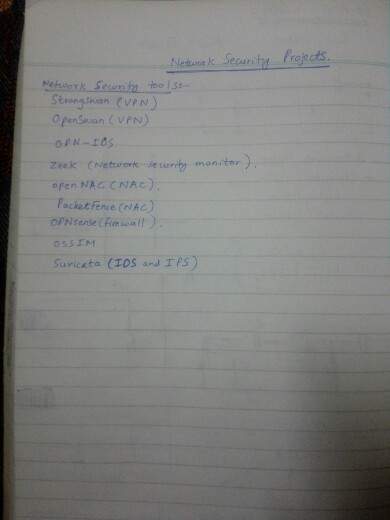 Network Security Projects.
Network Security tools:-
Strongswan (VPN)
OpenSwan (VPN)
OPN-IDS
Zeek (Network security monitor).
open NAC (NAC).
PacketFence (NAC)
OPNsense (firewall).
OSSIM
Suricata (IDS and IPS)